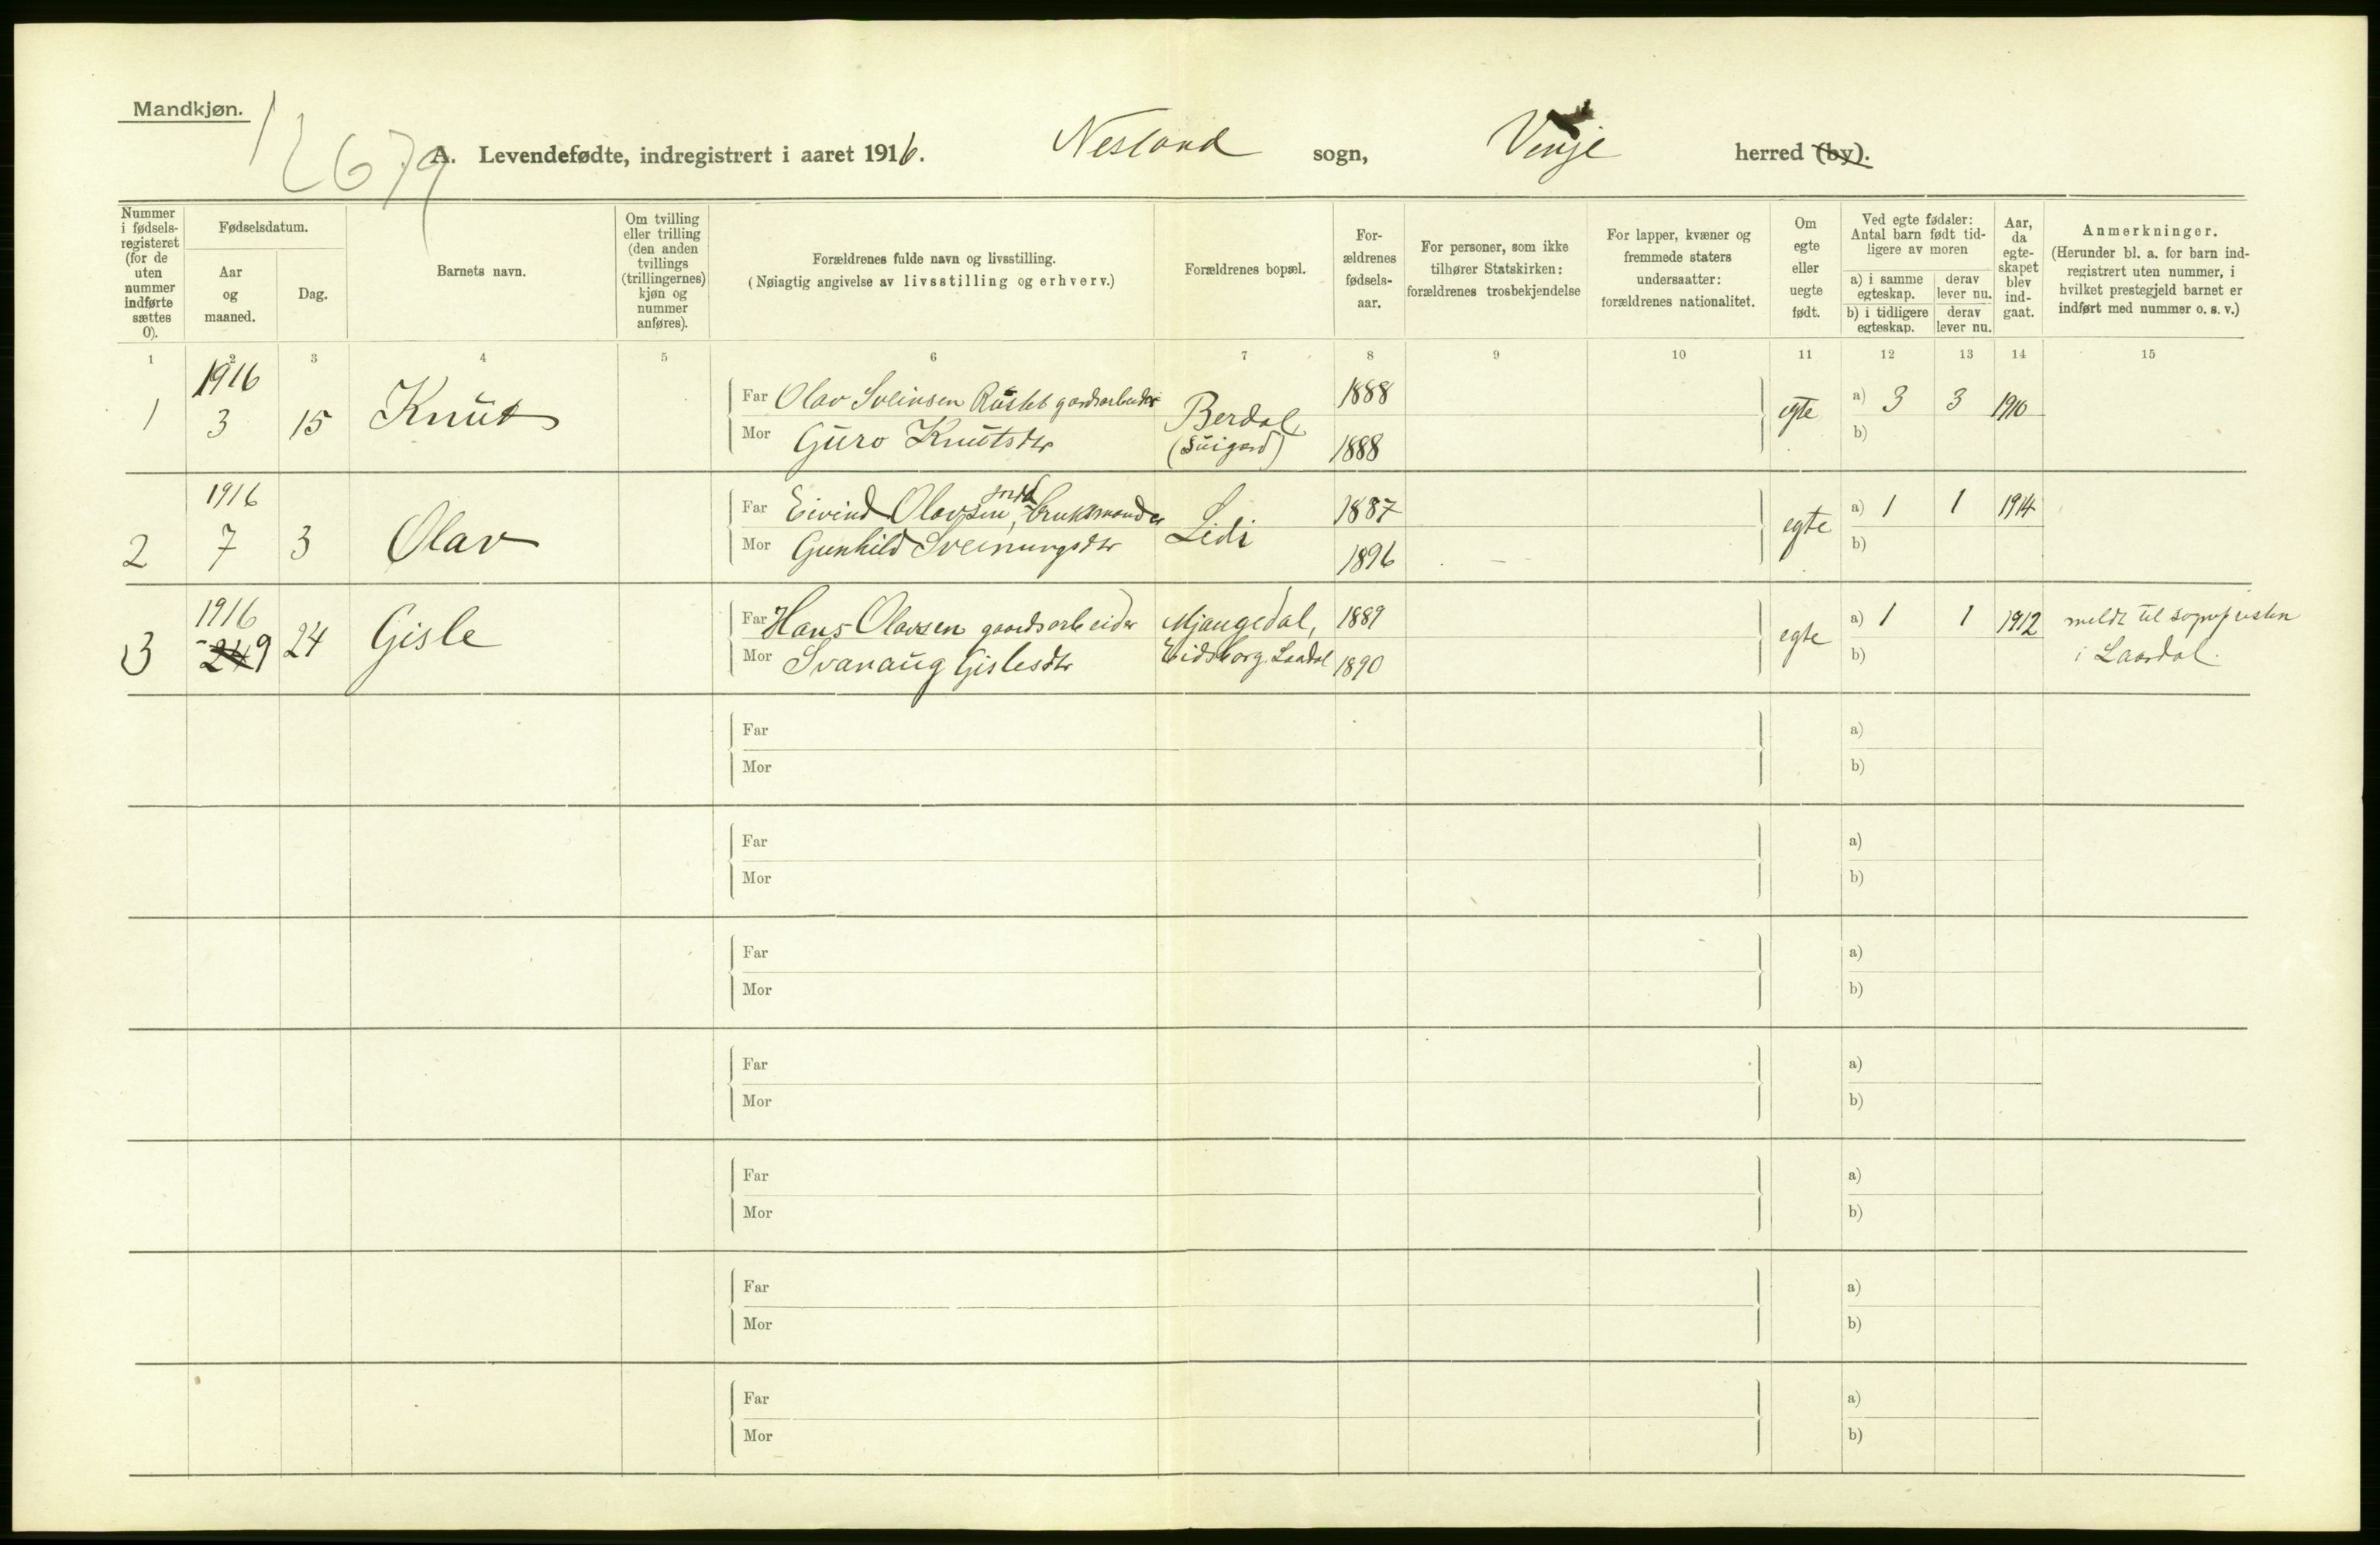 Mandkjøn.
12679
A. Levendefødte, indregistrert i aaret 1916. Nesland sogn, Vinje herred (by).
Nummer i fødsels-registeret (for de uten nummer indførte sættes 0).
Fødselsdatum.
Aar og maaned.
Dag.
Barnets navn.
Om tvilling eller trilling (den anden tvillings (trillingernes) kjøn og nummer anføres).
Forældrenes fulde navn og livsstilling.
(Nøiagtig angivelse av livsstilling og erhverv.)
Forældrenes bopæl.
For-ældrenes fødsels-aar.
For personer, som ikke tilhører Statskirken: forældrenes trosbekjendelse
For lapper, kvæner og fremmede staters undersaatter: forældrenes nationalitet.
Om egte eller uegte født.
Ved egte fødsler: Antal barn født tid-ligere av moren
a) i samme egteskap.
derav lever nu.
b) i tidligere egteskap.
derav lever nu.
Aar, da egte-skapet blev ind-gaat.
Anmerkninger.
(Herunder bl. a. for barn ind-registrert uten nummer, i hvilket prestegjeld barnet er indført med nummer o. s. v.)
1 2 3 4 5 6 7 8 9 10 11 12 13 14 15
1 1916 3 15 Knut
Far Olav Sveinsen gardsarbeider Berdal 1888
Mor Guro Knutsdtr 1888
egte a) 3 3 1910
b)
2 1916 7 3 Olav
Far Eivind Olavsen, bruksmand Lidi 1887
Mor Gunhild Sveinungsdtr 1896
egte a) 1 1 1914
b)
3 1916 9 24 Gisle
Far Hans Olavsen gaardsarbeider Mjaugedal, 1889
Mor Svanaug Gislesdtr Eidsborg, Laardal 1890
egte a) 1 1 1912
b)
meldt til sognepresten
i Laardal.
Far a)
Mor b)
Far a)
Mor b)
Far a)
Mor b)
Far a)
Mor b)
Far a)
Mor b)
Far a)
Mor b)
Far a)
Mor b)